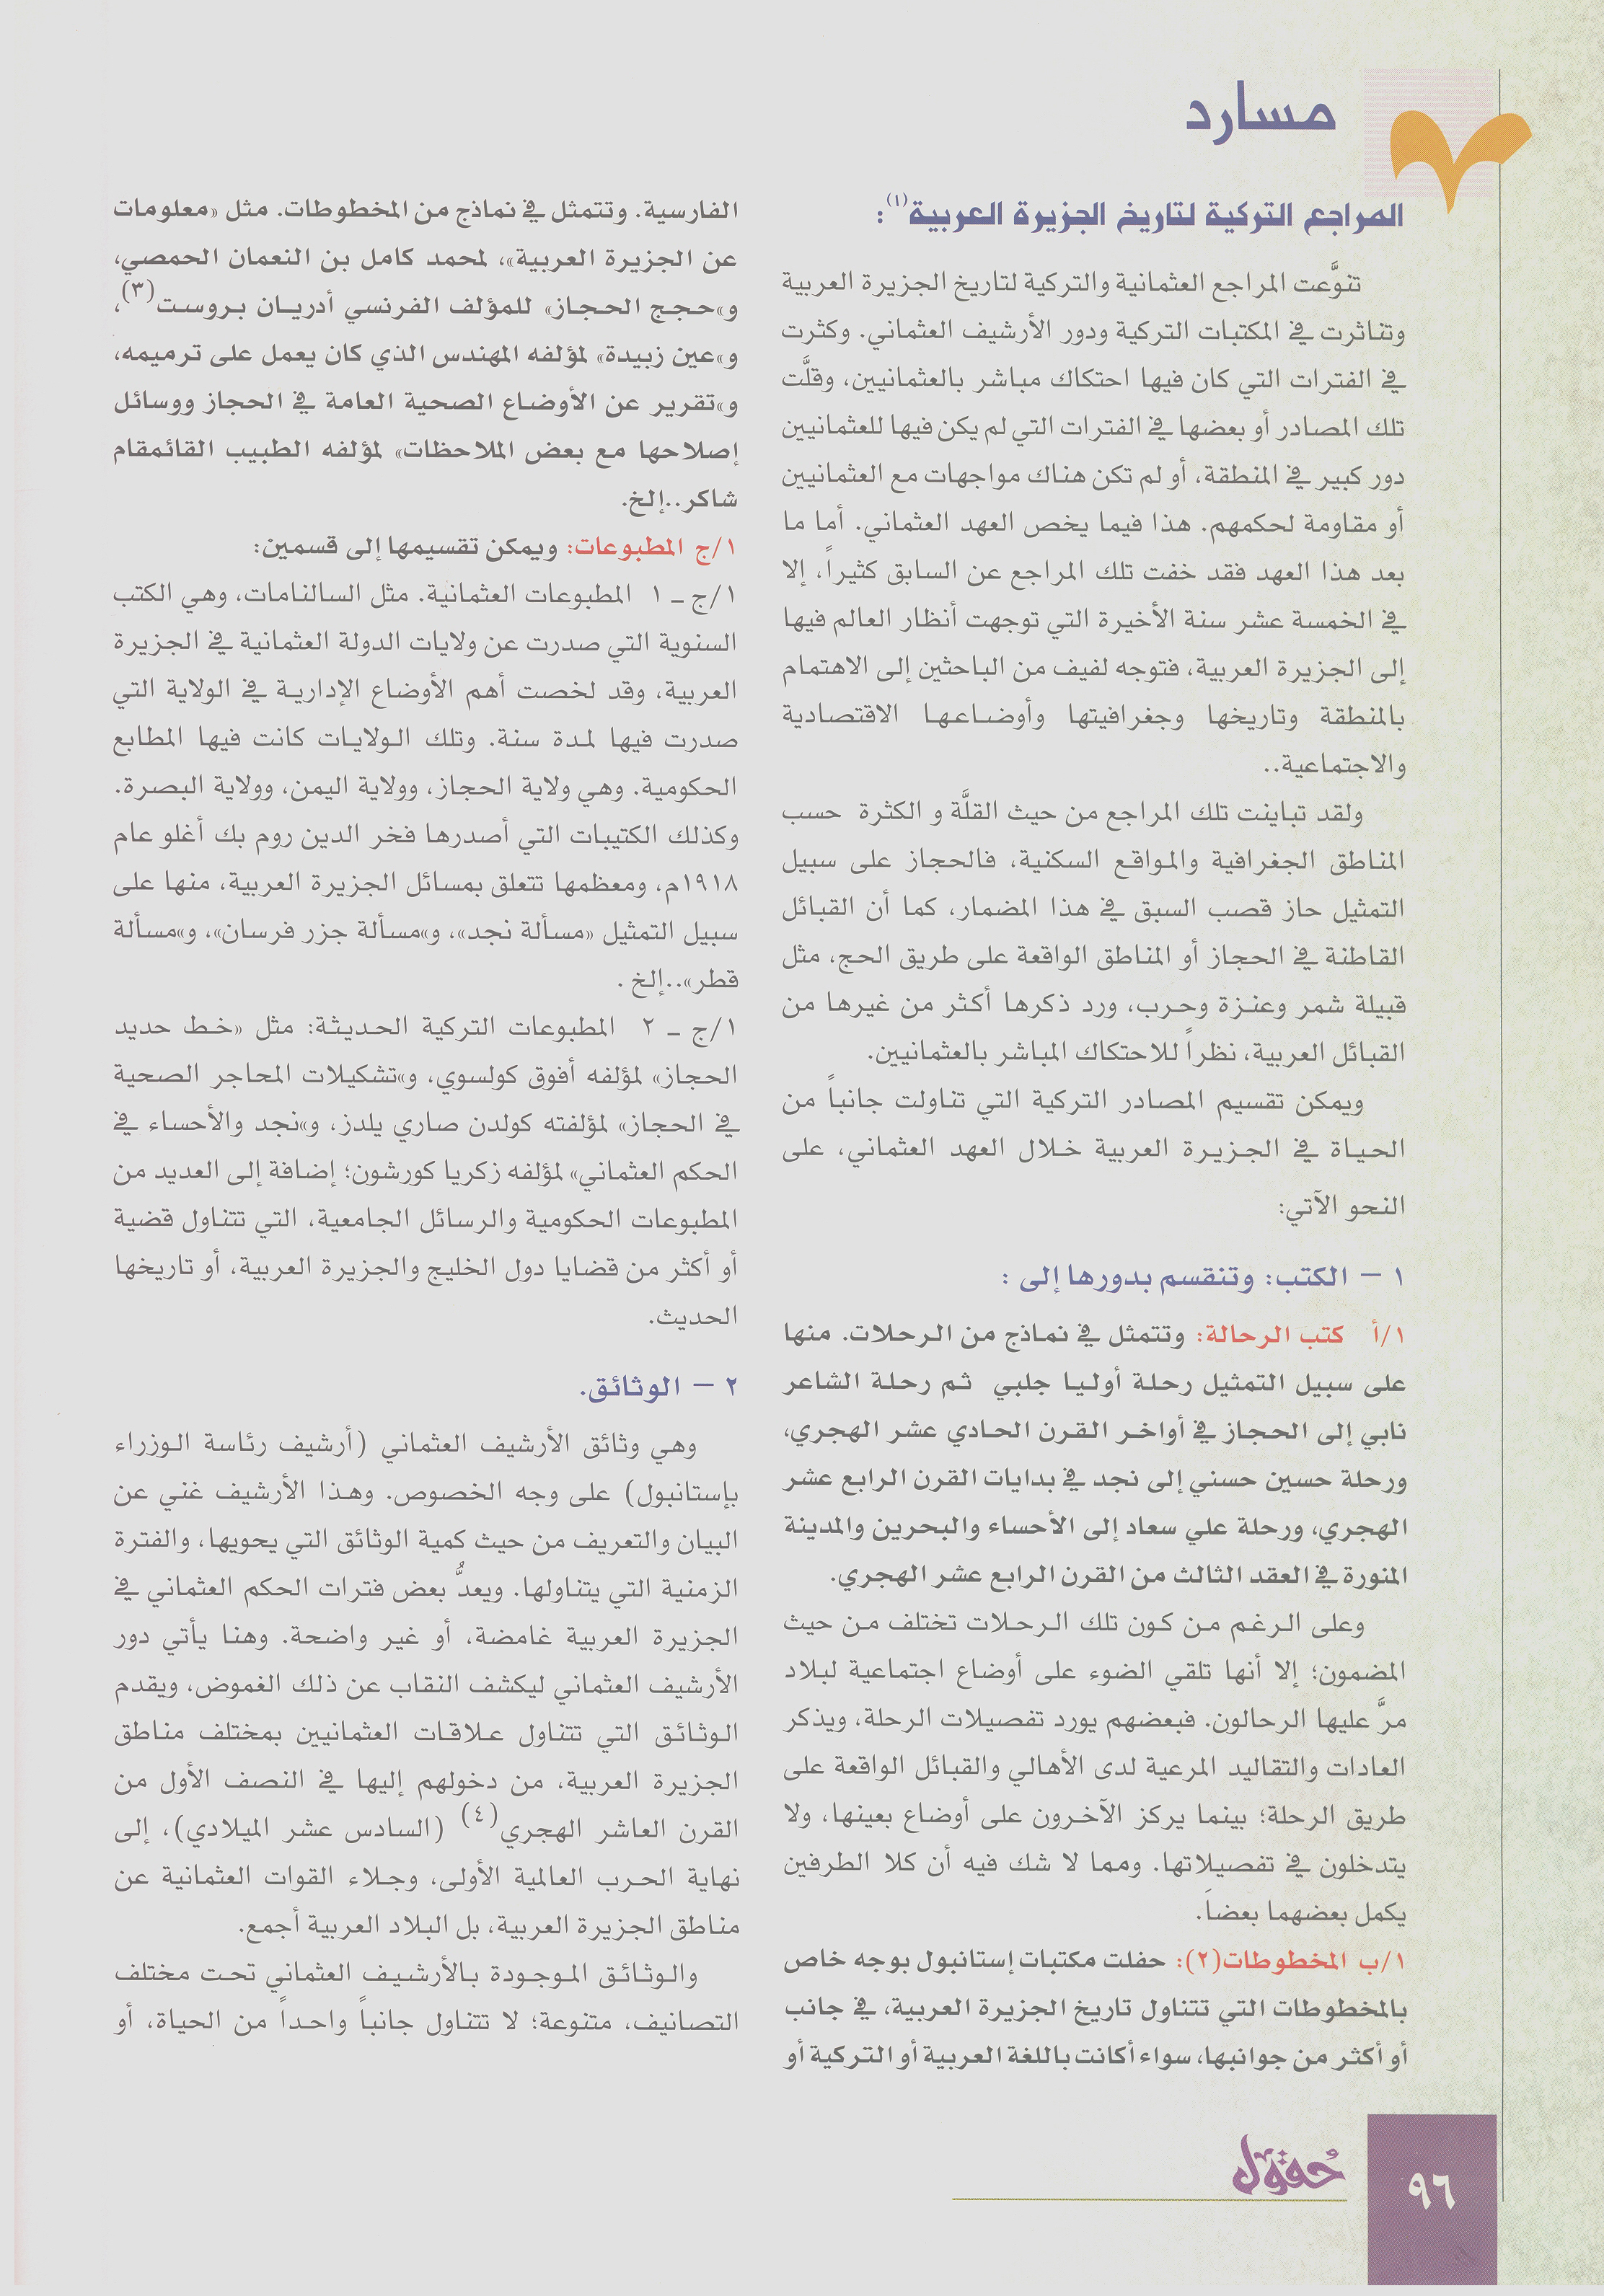 مسارد
المراجع التركية لتاريخ الجزيرة العربية(١):
تنوَّعت المراجع العثمانية والتركية لتاريخ الجزيرة العربية
وتناثرت في المكتبات التركية ودور الأرشيف العثماني. وكثرت
في الفترات التي كان فيها احتكاك مباشر بالعثمانيين، وقلَّت
تلك المصادر أو بعضها في الفترات التي لم يكن فيها للعثمانيين
دور كبير في المنطقة، أو لم تكن هناك مواجهات مع العثمانيين
أو مقاومة لحكمهم. هذا فيما يخص العهد العثماني. أما ما
بعد هذا العهد فقد خفت تلك المراجع عن السابق كثيراً، إلا
في الخمسة عشر سنة الأخيرة التي توجهت أنظار العالم فيها
إلى الجزيرة العربية، فتوجه لفيف من الباحثين إلى الاهتمام
بالمنطقة وتاريخها وجغرافيتها وأوضاعها الاقتصادية
والاجتماعية..
ولقد تباينت تلك المراجع من حيث القلَّة و الكثرة حسب
المناطق الجغرافية والمواقع السكنية، فالحجاز على سبيل
التمثيل حاز قصب السبق في هذا المضمار، كما أن القبائل
القاطنة في الحجاز أو المناطق الواقعة على طريق الحج، مثل
قبيلة شمر وعنزة وحرب، ورد ذكرها أكثر من غيرها من
القبائل العربية، نظراً للاحتكاك المباشر بالعثمانيين.
ويمكن تقسيم المصادر التركية التي تناولت جانباً من
الحياة في الجزيرة العربية خلال العهد العثماني، على
النحو الآتي:
١ – الكتب: وتنقسم بدورها إلى :
١/أ كتب الرحالة: وتتمثل في نماذج من الرحلات. منها
على سبيل التمثيل رحلة أوليا جلبي ثم رحلة الشاعر
نابي إلى الحجاز في أواخر القرن الحادي عشر الهجري،
ورحلة حسين حسني إلى نجد في بدايات القرن الرابع عشر
الهجري، ورحلة علي سعاد إلى الأحساء والبحرين والمدينة
المنورة في العقد الثالث من القرن الرابع عشر الهجري.
وعلى الرغم من كون تلك الرحلات تختلف من حيث
المضمون؛ إلا أنها تلقي الضوء على أوضاع اجتماعية لبلاد
مرَّ عليها الرحالون. فبعضهم يورد تفصيلات الرحلة، ويذكر
العادات والتقاليد المرعية لدى الأهالي والقبائل الواقعة على
طريق الرحلة؛ بينما يركز الآخرون على أوضاع بعينها، ولا
يتدخلون في تفصيلاتها. ومما لا شك فيه أن كلا الطرفين
يكمل بعضهما بعضاً.
١/ب المخطوطات(٢): حفلت مكتبات إستانبول بوجه خاص
بالمخطوطات التي تتناول تاريخ الجزيرة العربية، في جانب
أو أكثر من جوانبها، سواء أكانت باللغة العربية أو التركية أو
الفارسية. وتتمثل في نماذج من المخطوطات. مثل «معلومات
عن الجزيرة العربية»، لمحمد كامل بن النعمان الحمصي،
و»حجج الحجاز» للمؤلف الفرنسي أدريان بروست(٣)،
و»عين زبيدة» لمؤلفه المهندس الذي كان يعمل على ترميمه،
و»تقرير عن الأوضاع الصحية العامة في الحجاز ووسائل
إصلاحها مع بعض الملاحظات» لمؤلفه الطبيب القائمقام
شاكر..إلخ.
١/ج المطبوعات: ويمكن تقسيمها إلى قسمين:
١/ج ـ ١ المطبوعات العثمانية. مثل السالنامات، وهي الكتب
السنوية التي صدرت عن ولايات الدولة العثمانية في الجزيرة
العربية، وقد لخصت أهم الأوضاع الإدارية في الولاية التي
صدرت فيها لمدة سنة. وتلك الولايات كانت فيها المطابع
الحكومية. وهي ولاية الحجاز، وولاية اليمن، وولاية البصرة.
وكذلك الكتيبات التي أصدرها فخر الدين روم بك أغلو عام
١٩١٨م، ومعظمها تتعلق بمسائل الجزيرة العربية، منها على
سبيل التمثيل «مسألة نجد»، و»مسألة جزر فرسان»، و»مسألة
قطر»..إلخ .
١/ج ـ ٢ المطبوعات التركية الحديثة: مثل «خط حديد
الحجاز» لمؤلفه أفوق كولسوي، و»تشكيلات المحاجر الصحية
في الحجاز» لمؤلفته كولدن صاري يلدز، و»نجد والأحساء في
الحكم العثماني» لمؤلفه زكريا كورشون؛ إضافة إلى العديد من
المطبوعات الحكومية والرسائل الجامعية، التي تتناول قضية
أو أكثر من قضايا دول الخليج والجزيرة العربية، أو تاريخها
الحديث.
٢ – الوثائق.
وهي وثائق الأرشيف العثماني (أرشيف رئاسة الوزراء
بإستانبول) على وجه الخصوص. وهذا الأرشيف غني عن
البيان والتعريف من حيث كمية الوثائق التي يحويها، والفترة
الزمنية التي يتناولها. ويعدُّ بعض فترات الحكم العثماني في
الجزيرة العربية غامضة، أو غير واضحة. وهنا يأتي دور
الأرشيف العثماني ليكشف النقاب عن ذلك الغموض، ويقدم
الوثائق التي تتناول علاقات العثمانيين بمختلف مناطق
الجزيرة العربية، من دخولهم إليها في النصف الأول من
القرن العاشر الهجري(٤) (السادس عشر الميلادي)، إلى
نهاية الحرب العالمية الأولى، وجلاء القوات العثمانية عن
مناطق الجزيرة العربية، بل البلاد العربية أجمع.
والوثائق الموجودة بالأرشيف العثماني تحت مختلف
التصانيف، متنوعة؛ لا تتناول جانباً واحداً من الحياة، أو
حُقول
٩٦